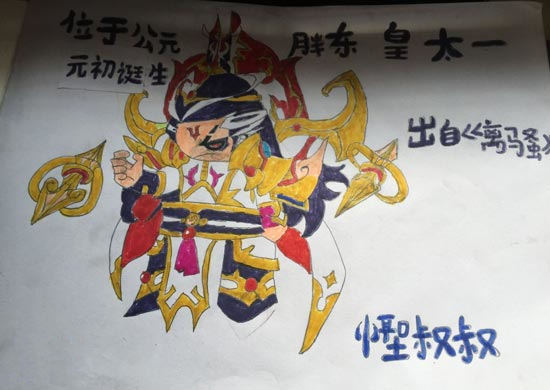 位于公元
元初诞生
胖东皇太一
出自《离骚》
叔叔